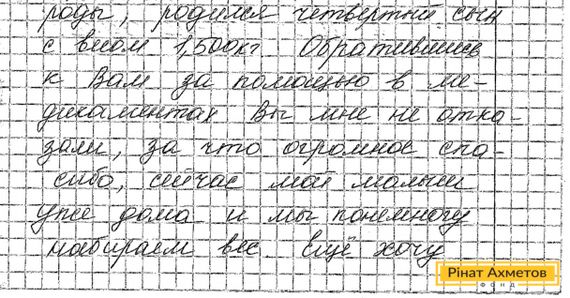 роды, родился четвертый сын
с весом 1,500кг Обратившись
к Вам за помощью в ме-
дикаментах Вы мне не отка-
зали, за что огромное спа-
сибо, сейчас мой малыш
уже дома и мы понемногу
набираем вес. Ещё хочу
Рінат Ахметов
фонд